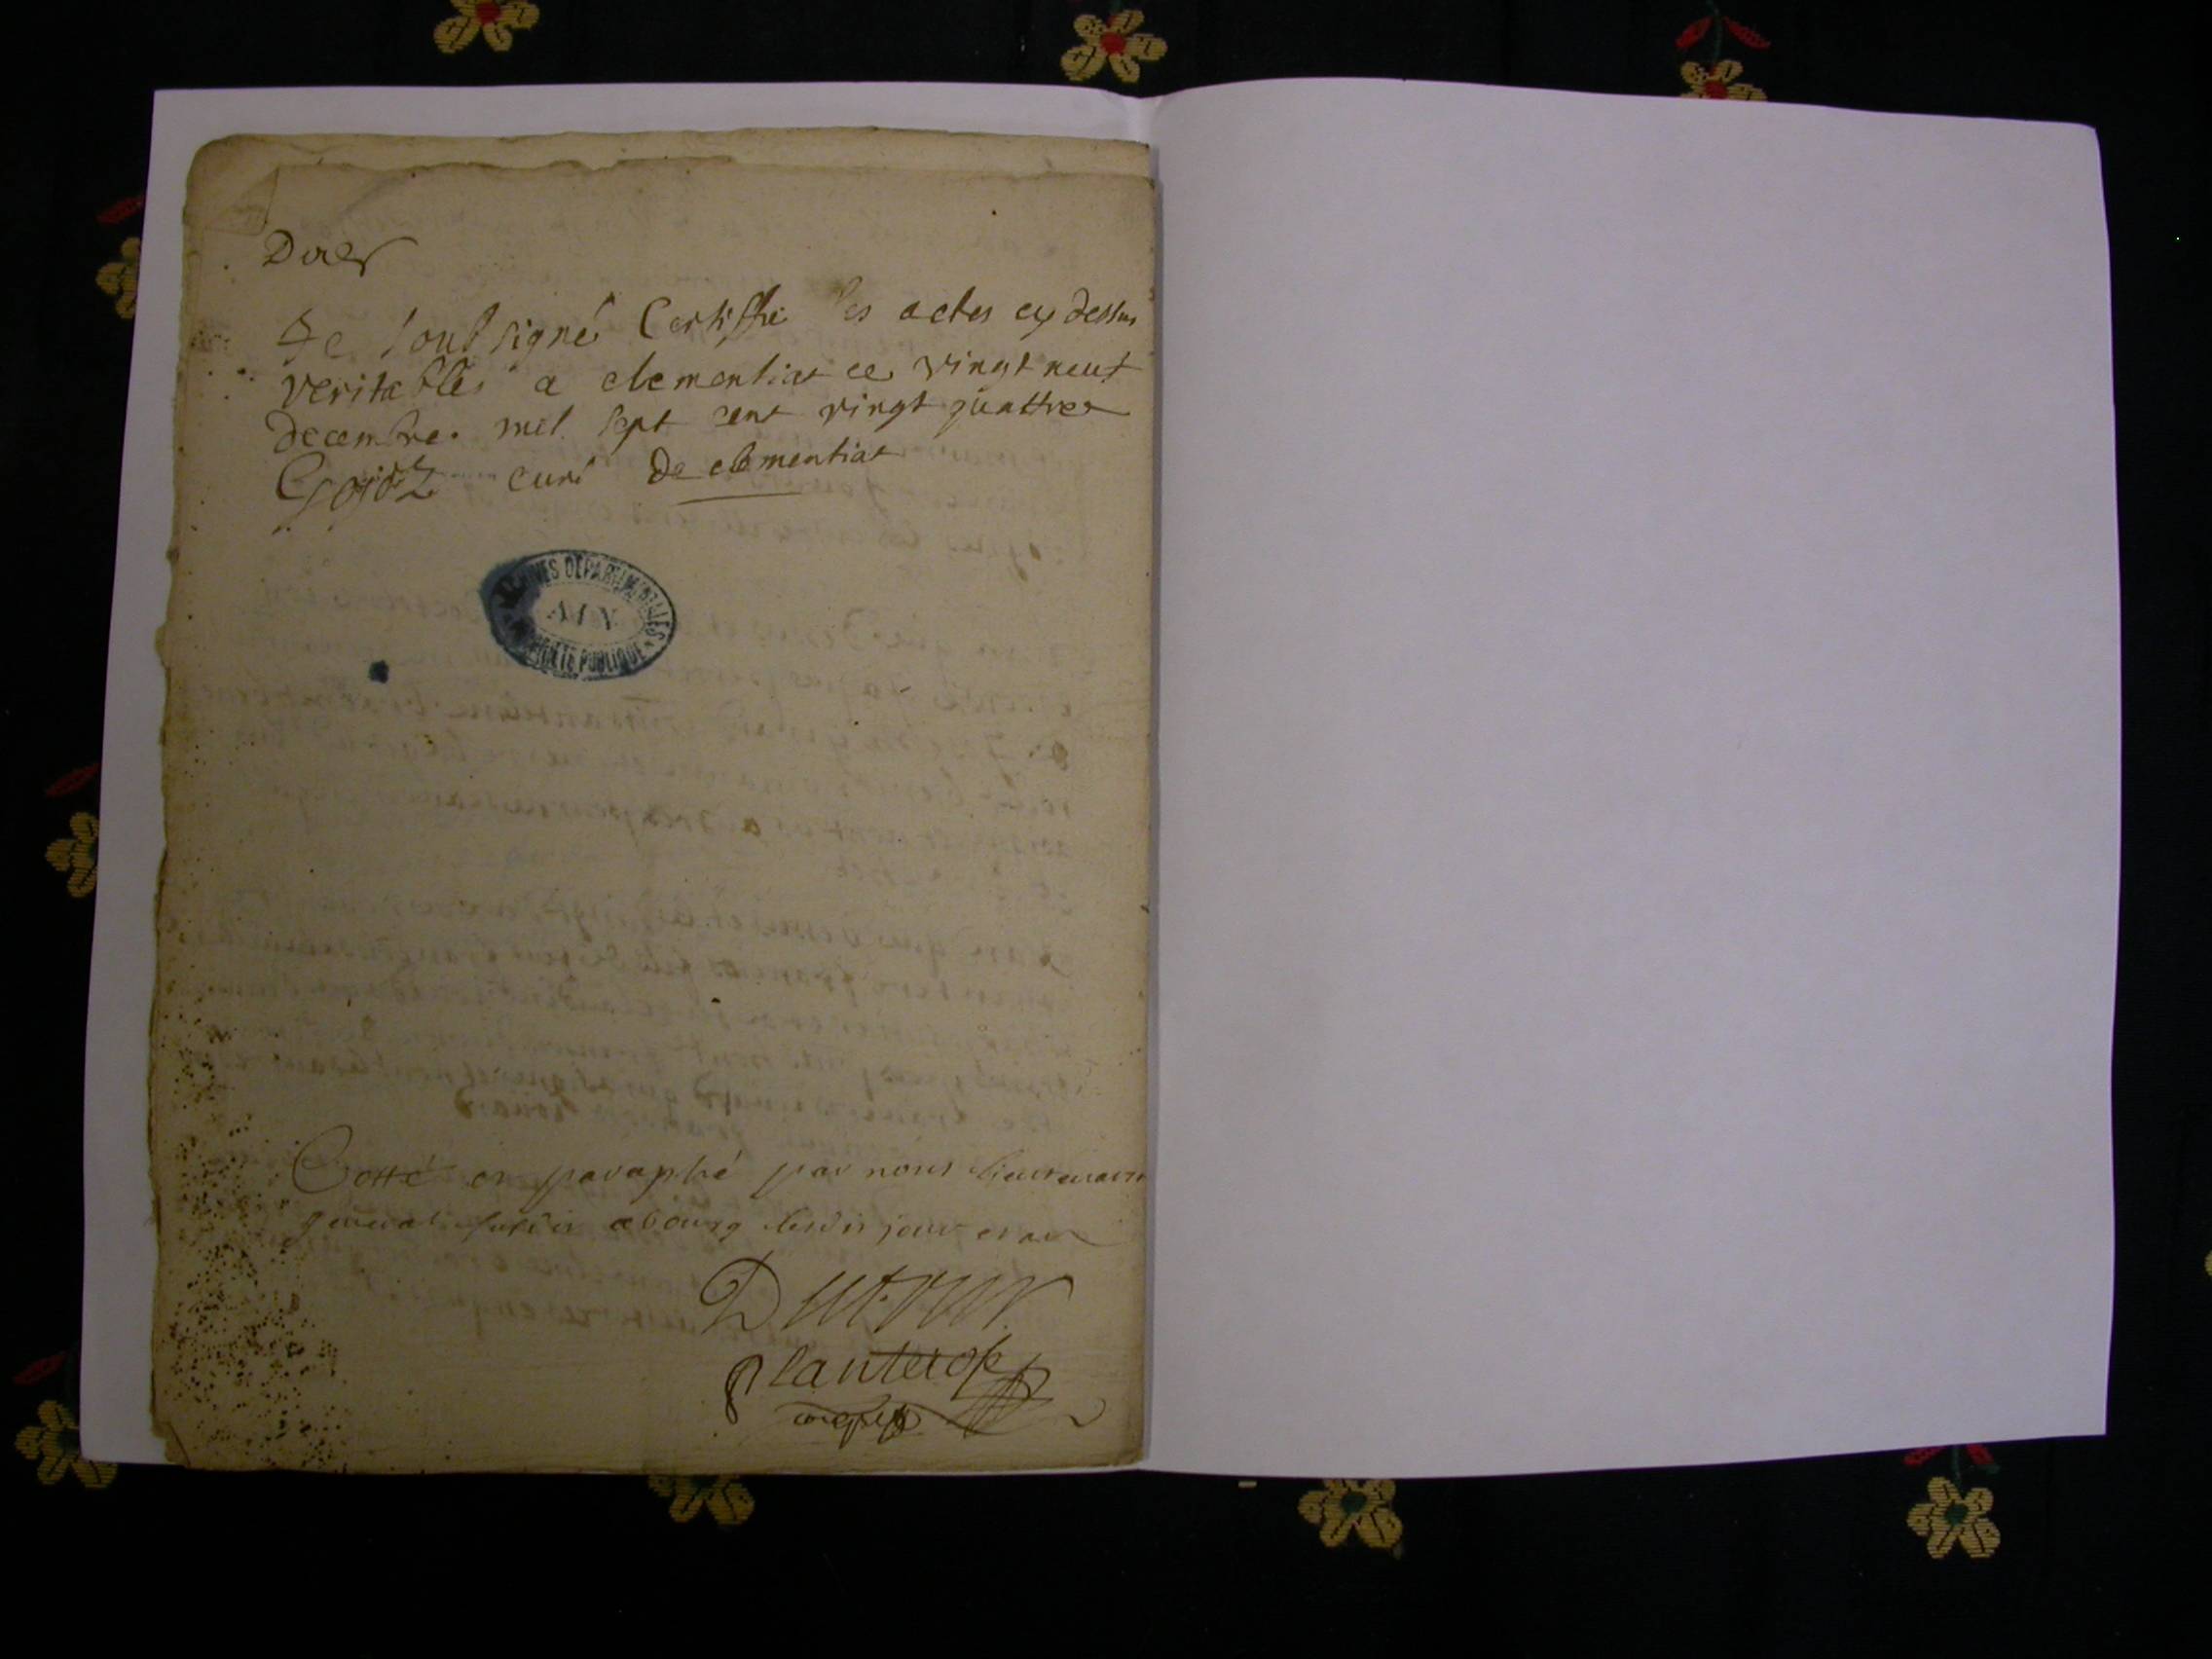 Je soubsigné Certiffie les actes cy dessus
veritables a clementiat ce vingt neuf
decembre mil sept cent vingt quattre
curé De clementiat
ARCHIVES DÉPARTEMENTALES
AIN
PROPRIÉTÉ PUBLIQUE
Cotté et paraphé par nous lieutenant
general susdit a bourg lesdit jour et an
Planterot